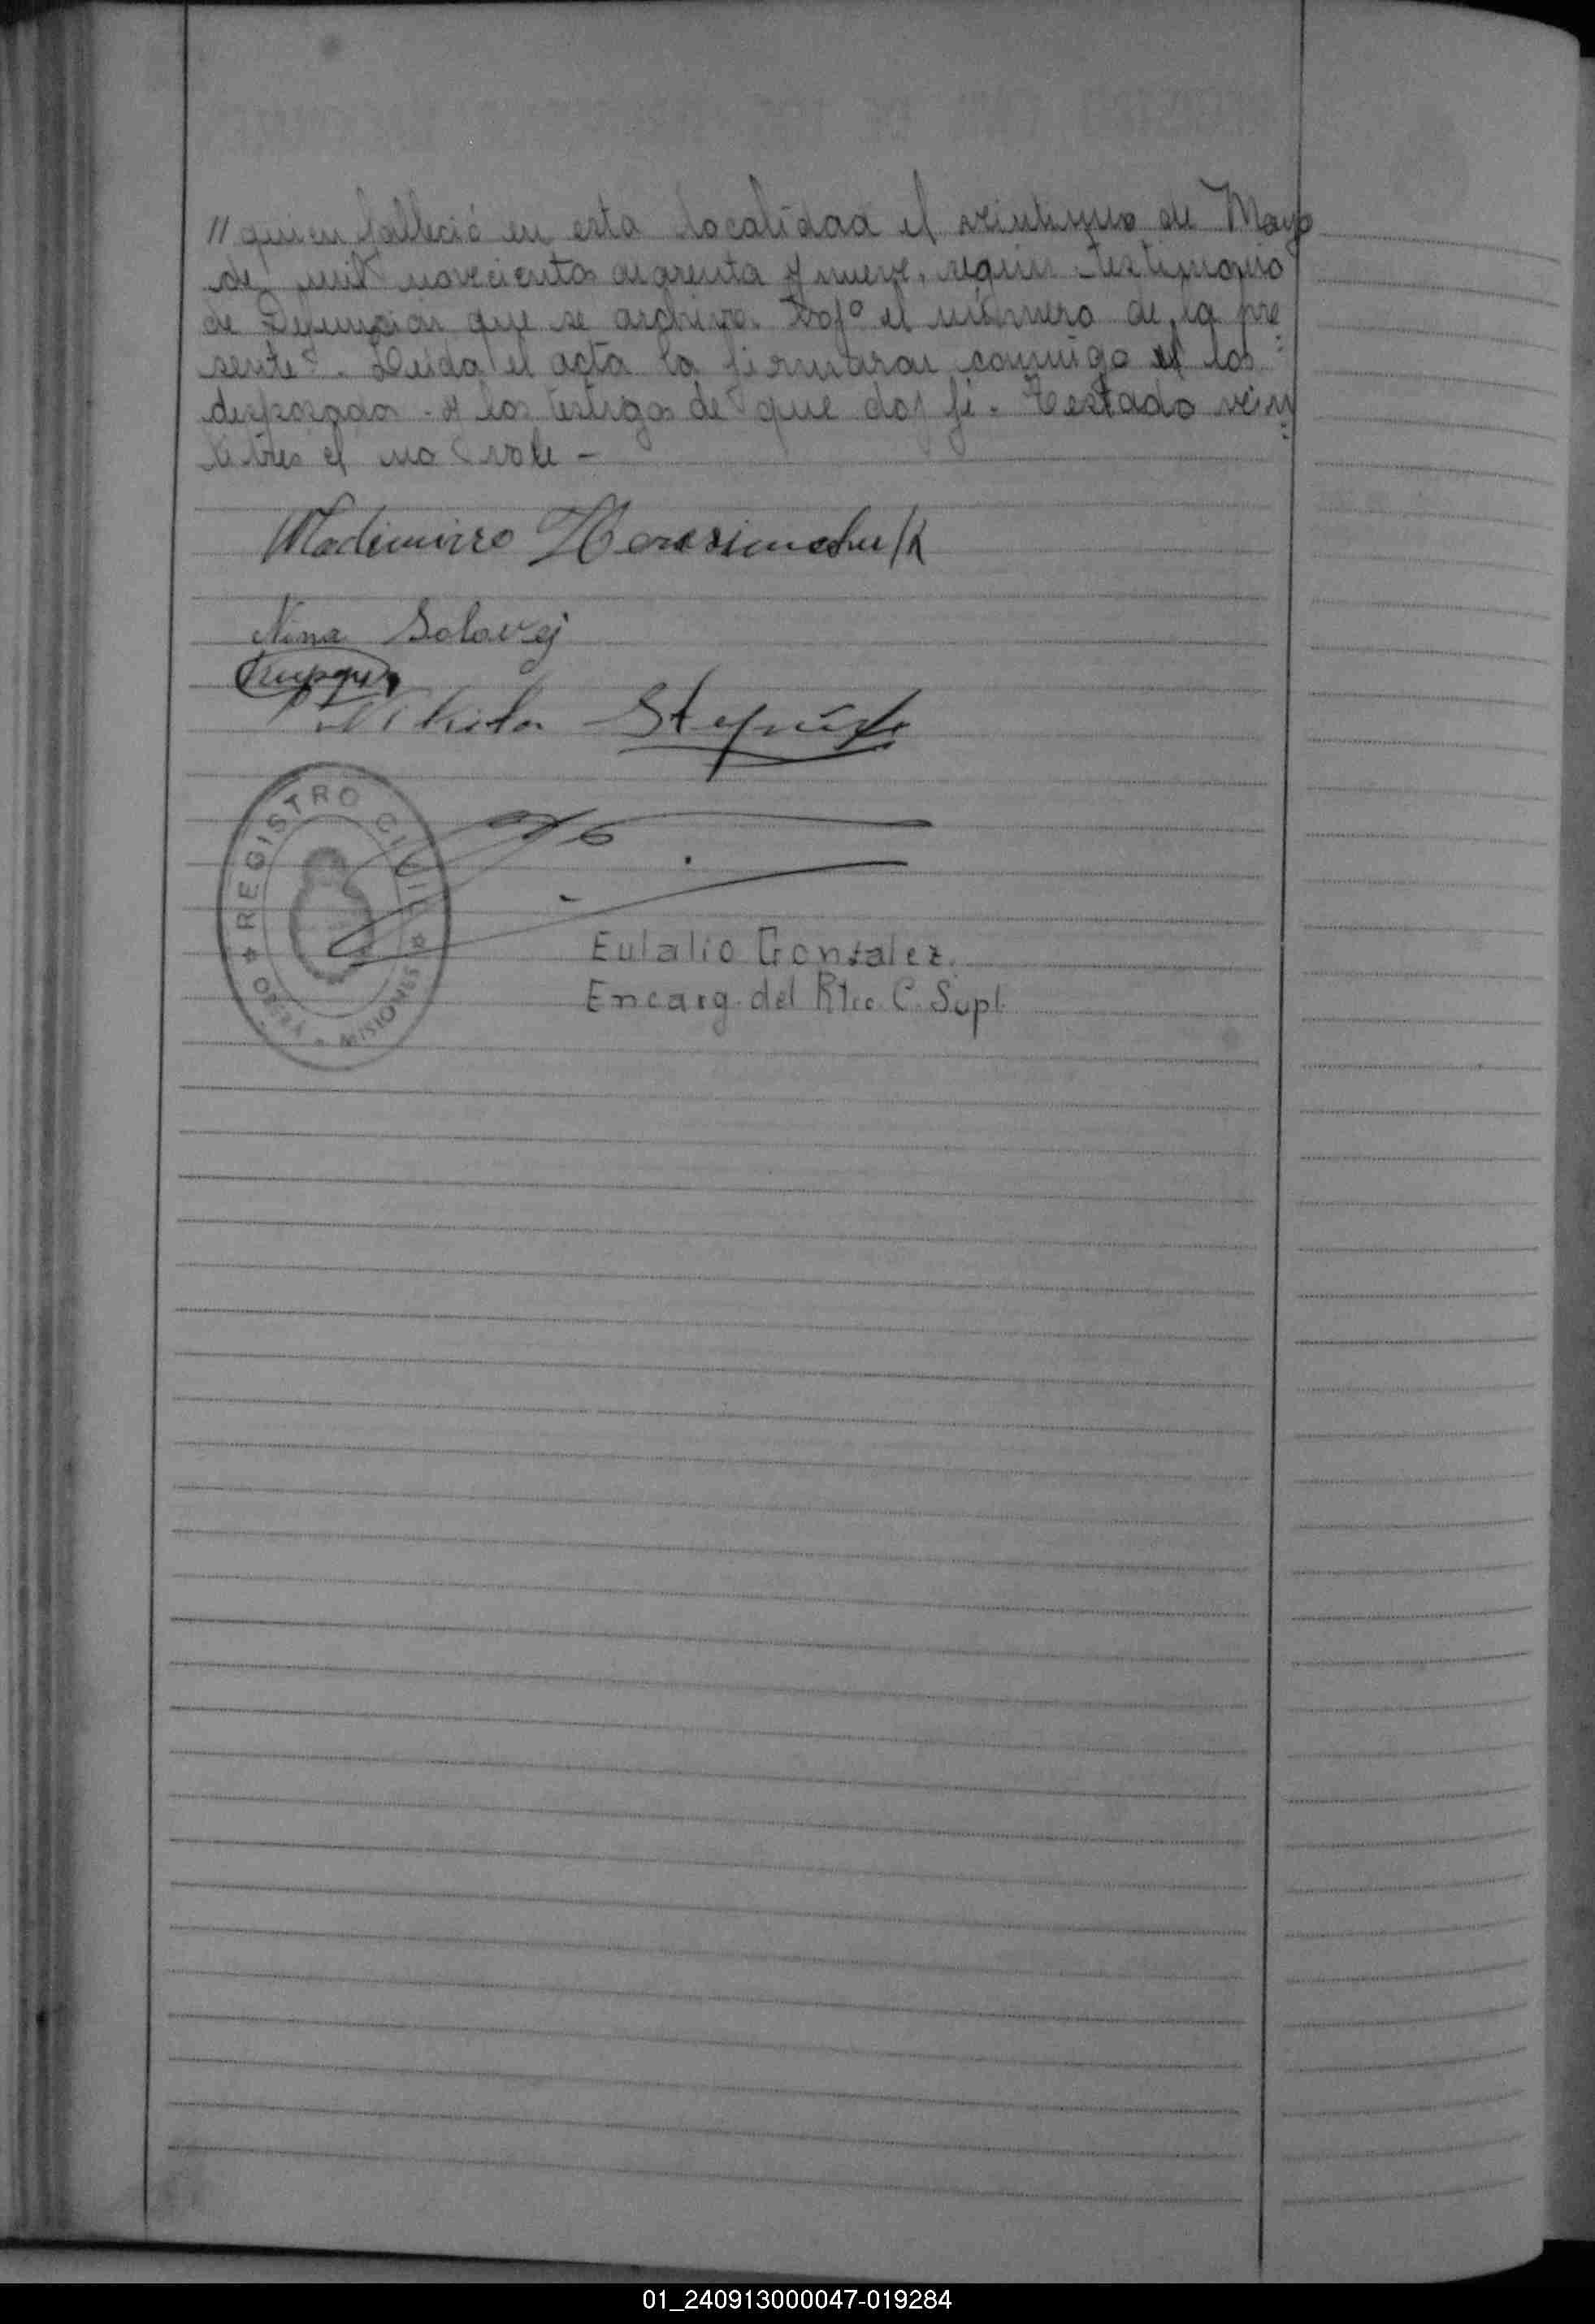 // quien falleció en esta localidad el veintiuno de Mayo
de mil novecientos cuarenta y nueve, según testimonio
de Defuncion que se archiva bajo el número de la pre
sente. Leida el acta la firmaron conmigo el los
desposados y los testigos de que doy fé. Testado vein
titres el no vale -
Wladimiro Herasimchu/k
Nina Solovej
Nikita
REGISTRO CIVIL
OBERÁ * MISIONES
Eulalio Gonzalez.
Encarg. del Rtro. C. Supl.
01_240913000047-019284